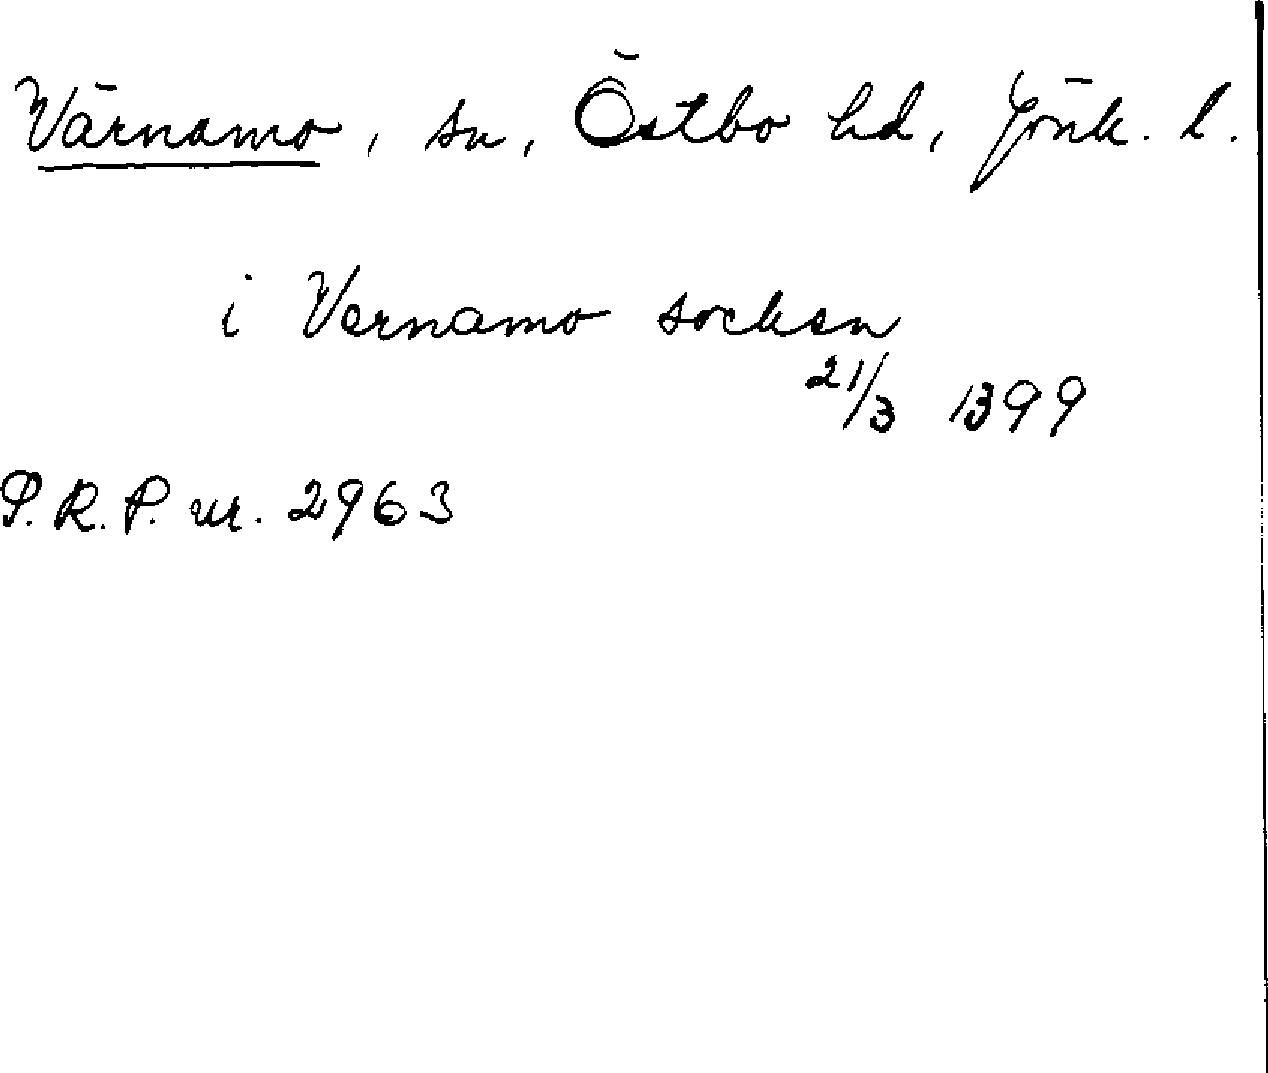 Värnamo, sn, Östbo hd, Jönk. l.
i Vernamo socken
21/3 1399
S.R.P. nr. 2963